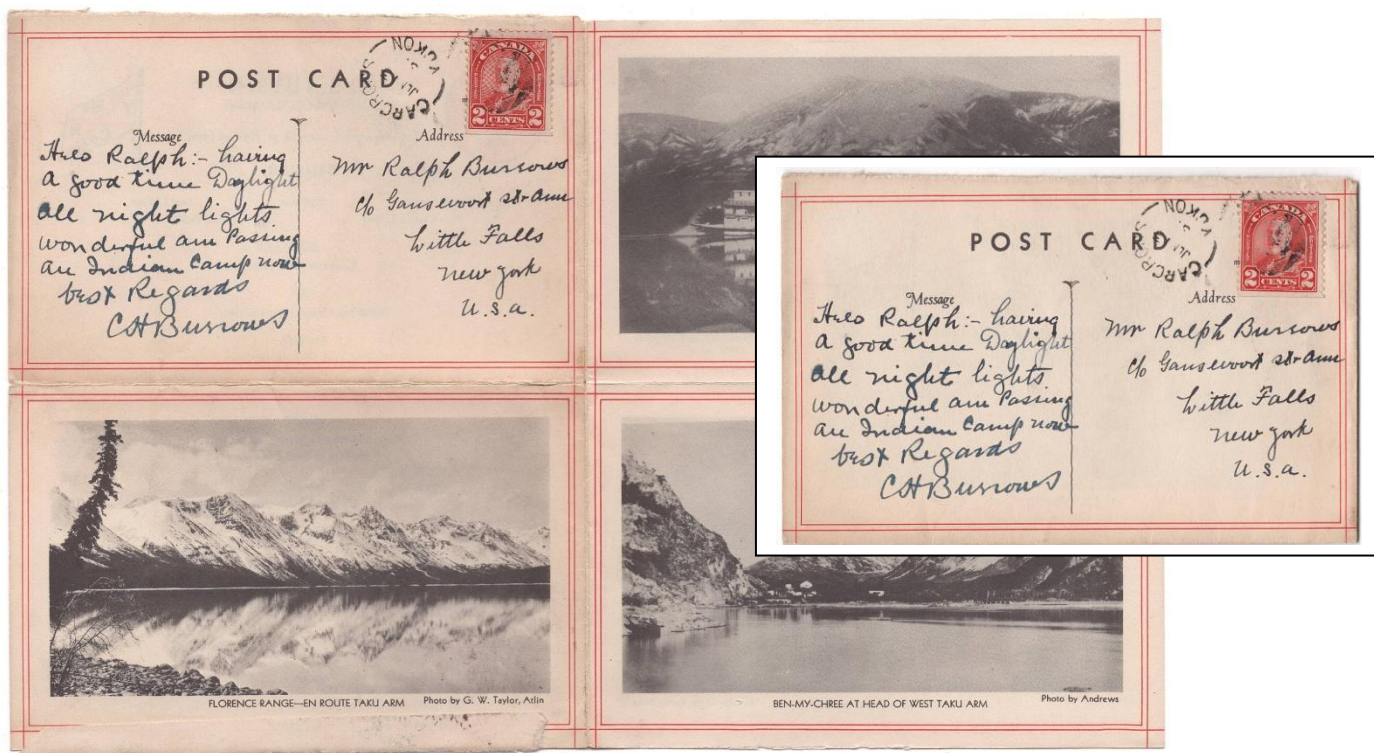 POST CARD
CARCROSS
YUKON
CANADA
2 CENTS 2
Message
Helo Ralph:- having
a good time Daylight
all night lights
wonderful am Passing
an Indian Camp now
best Regards
CH Burrows
Address
Mr Ralph Burrows
c/o Gansevoort
Little Falls
New york
U.S.a.
FLORENCE RANGE—EN ROUTE TAKU ARM
Photo by G. W. Taylor, Atlin
BEN-MY-CHREE AT HEAD OF WEST TAKU ARM
Photo by Andrews
POST CARD
CARCROSS
YUKON
CANADA
2 CENTS 2
Message
Helo Ralph:- having
a good time Daylight
all night lights
wonderful am Passing
an Indian Camp now
best Regards
CH Burrows
Address
Mr Ralph Burrows
c/o Gansevoort
Little Falls
New york
U.S.a.